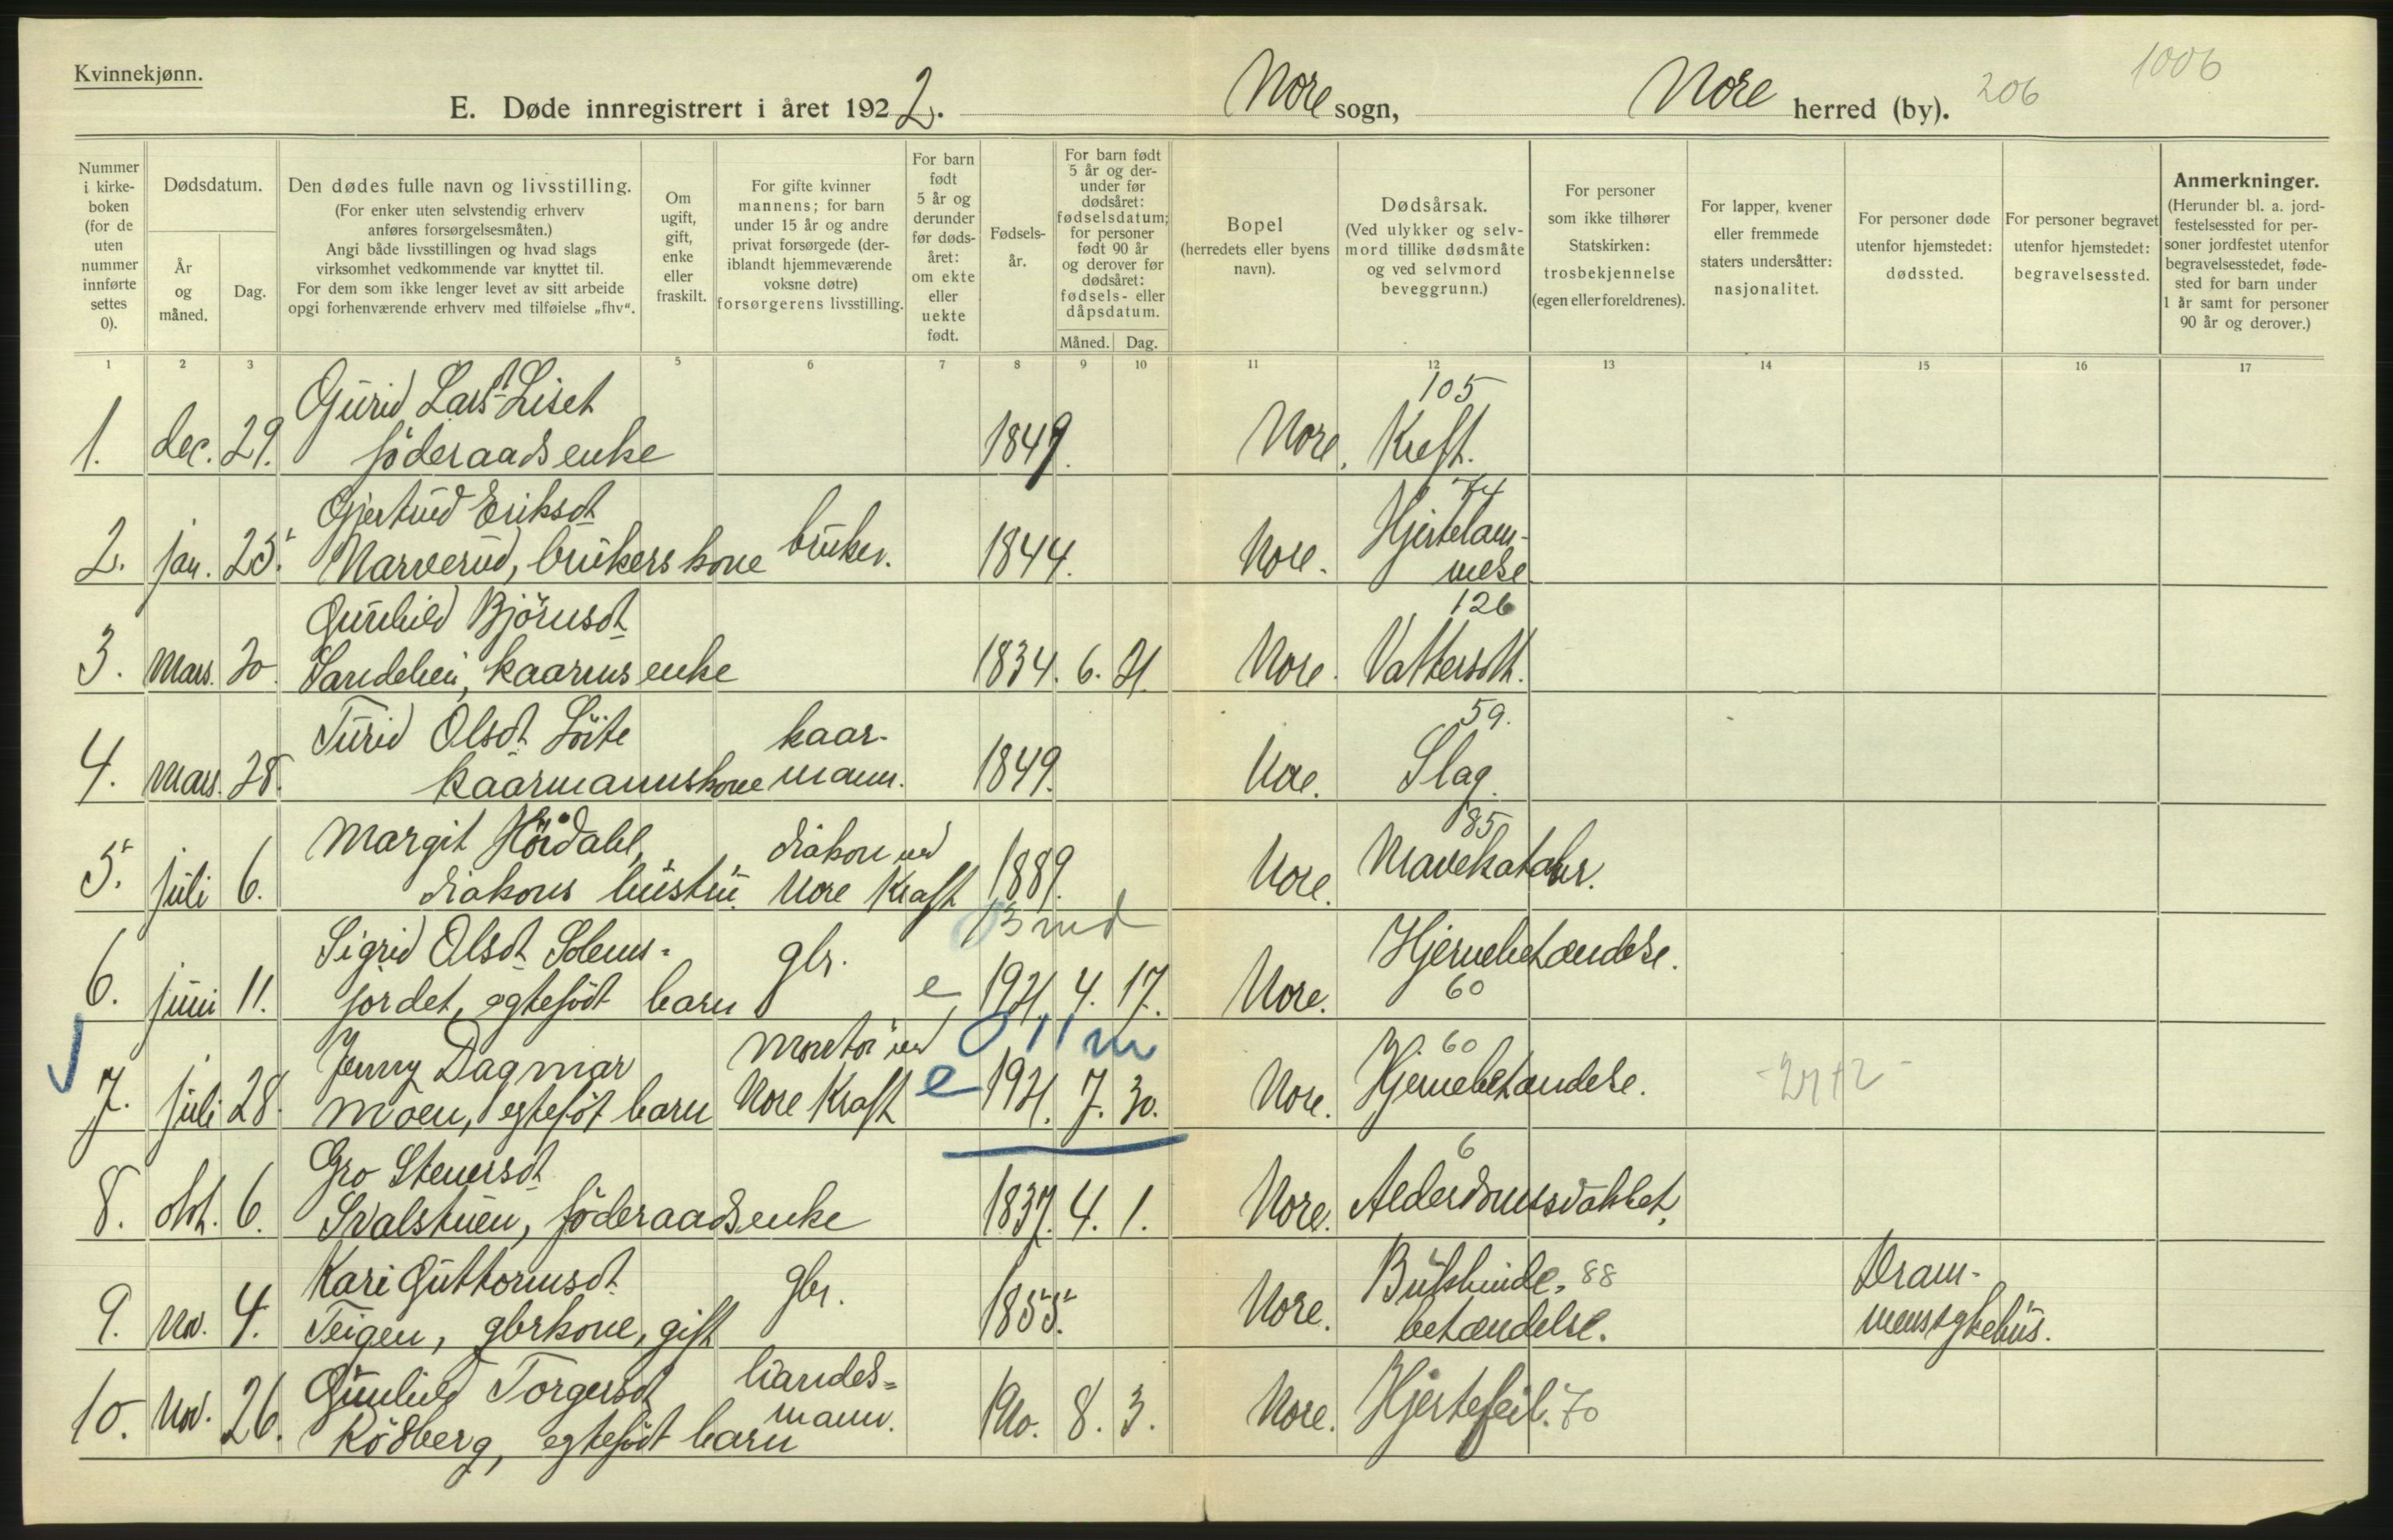 Kvinnekjønn.
E. Døde innregistrert i året 1922. Nore sogn, Nore herred (by). 206 1006
Nummer i kirke-boken (for de uten nummer innførte settes 0).
Dødsdatum.
År og måned.
Dag.
Den dødes fulle navn og livsstilling.
(For enker uten selvstendig erhverv
anføres forsørgelsesmåten.)
Angi både livsstillingen og hvad slags
virksomhet vedkommende var knyttet til.
For dem som ikke lenger levet av sitt arbeide
opgi forhenværende erhverv med tilføielse „fhv“.
Om ugift, gift, enke eller fraskilt.
For gifte kvinner
mannens; for barn
under 15 år og andre
privat forsørgede (der-
iblandt hjemmeværende
voksne døtre)
forsørgerens livsstilling.
For barn født 5 år og derunder før døds-året: om ekte eller uekte født.
Fødsels-år.
For barn født
5 år og der-
under før
dødsåret:
fødselsdatum;
for personer
født 90 år
og derover før
dødsåret:
fødsels- eller
dåpsdatum.
Måned. Dag.
Bopel
(herredets eller byens
navn).
Dødsårsak.
(Ved ulykker og selv-
mord tillike dødsmåte
og ved selvmord
beveggrunn.)
For personer
som ikke tilhører
Statskirken:
trosbekjennelse
(egen eller foreldrenes).
For lapper, kvener
eller fremmede
staters undersåtter:
nasjonalitet.
For personer døde
utenfor hjemstedet:
dødssted.
For personer begravet
utenfor hjemstedet:
begravelsessted.
Anmerkninger.
(Herunder bl. a. jord-
festelsessted for per-
soner jordfestet utenfor
begravelsesstedet, føde-
sted for barn under
1 år samt for personer
90 år og derover.)
1 2 3 5 6 7 8 9 10 11 12 13 14 15 16 17
Gurid Larsdt Liset 105
1. dec. 29. föderaadsenke 1849. Nore. Kreft.
Gjertrud Eriksdt 74 Hjertelam-
2. jan. 25. Narverud, brukers kone bruker. 1844. Nore. melse
Gunhild Björnsdt 126
3. Mars. 20. Sandelien, kaarmsenke 1834. 6. 21. Nore. Vattersott.
Turid Olsdt Löite kaar- 59.
4. Mars. 28. kaarmannskone mann. 1849. Nore. Slag.
Margit Hördahl, diakon ved 85
5. juli 6. diakons hustru. Nore Kraft 1889. Nore. Mavekatahr.
13 md
Sigrid Olsdt Solems- gbr. Hjernebetændelse.
6. juni 11. jordet, egtefödt barn e 1921. 4. 17. Nore. 60
Jenny Dagmar montör ved 0 11 m 60
7. juli 28. Moen, egteföt barn Nore Kraft e 1921. 7. 30. Nore. Hjernebetændelse.
Gro Stenersdt 6
8. okt. 6. Svalstuen, föderaadsenke 1837. 4. 1. Nore. Alderdomssvakhet.
Kari Guttormsdt gbr. Bukhinde- 88 Dram-
9. Nov. 4. Teigen, gbrkone, gift 1855. Nore. betændelse. mens sykehus.
Gunhild Torgersdt handes-
10. Nov. 26. Rödberg, egtefödt barn mann. 1910. 8. 3. Nore. Hjertefeil. 70